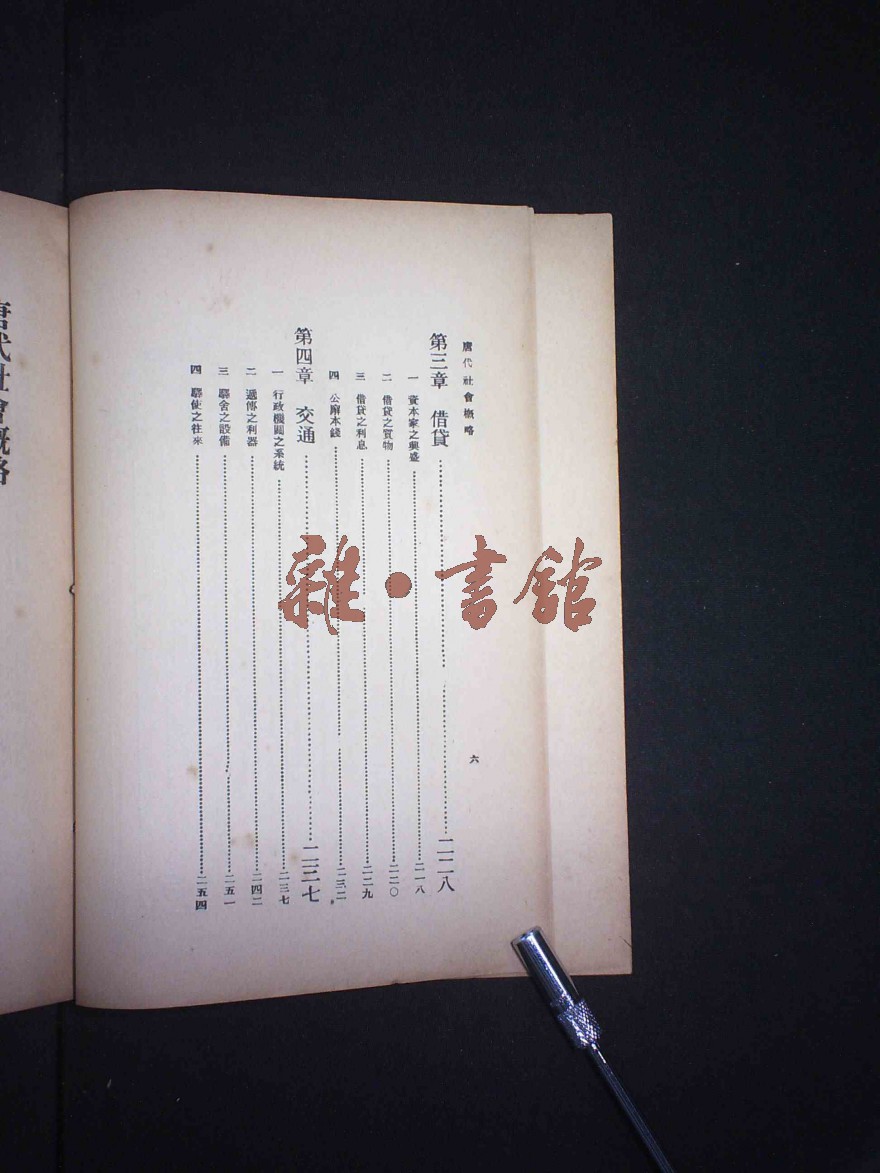 唐代社會概略
六
第三章 借貸……二一八
一 資本家之興盛……二一八
二 借貸之質物……二二〇
三 借貸之利息……二二九
四 公廨本錢……二三二
第四章 交通……二三七
一 行政機關之系統……二三七
二 遞傳之利器……二四二
三 驛舍之設備……二五一
四 驛使之往來……二五四
唐代社會概略
雜·書館